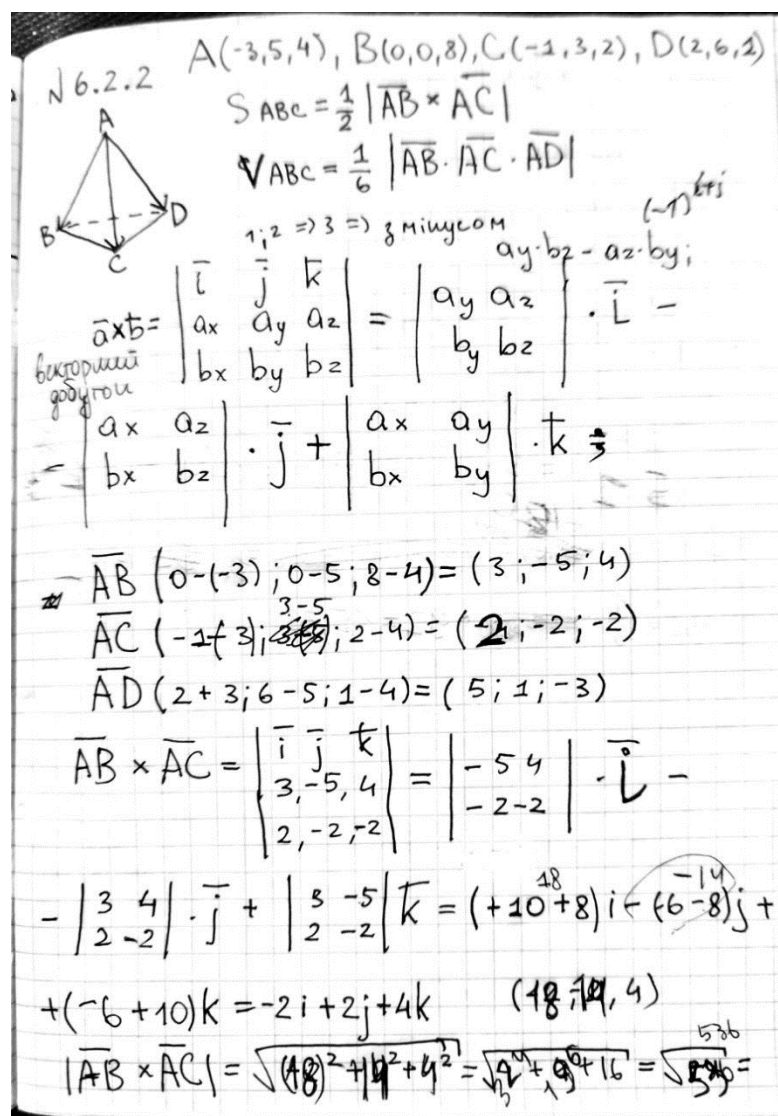 A(-3,5,4), B(0,0,8), C(-1,3,2), D(2,6,1)
№6.2.2
S ABC = 1/2 |AB × AC|
V ABC = 1/6 |AB · AC · AD|
A
B
C
D
1;2 => 3 => з мінусом
(-1)^(i+j)
ay·bz - az·by;
a×b = | i j k | ax ay az | bx by bz | = | ay az | by bz | · i -
векторний
добуток
- | ax az | bx bz | · j + | ax ay | bx by | · k =
AB (0-(-3); 0-5; 8-4) = (3; -5; 4)
3-5
AC (-1+3); ; 2-4) = (2; -2; -2)
AD (2+3; 6-5; 1-4) = (5; 1; -3)
AB × AC = | i j k | 3, -5, 4 | 2, -2, -2 | = | -5 4 | -2 -2 | · i -
18
-14
- | 3 4 | 2 -2 | · j + | 3 -5 | 2 -2 | k = (+10+8)i - (6-8)j +
+(-6+10)k = -2i + 2j + 4k (18; 14, 4)
536
|AB × AC| = √((18)² + 14² + 4²) = √( + + 16) = √ =